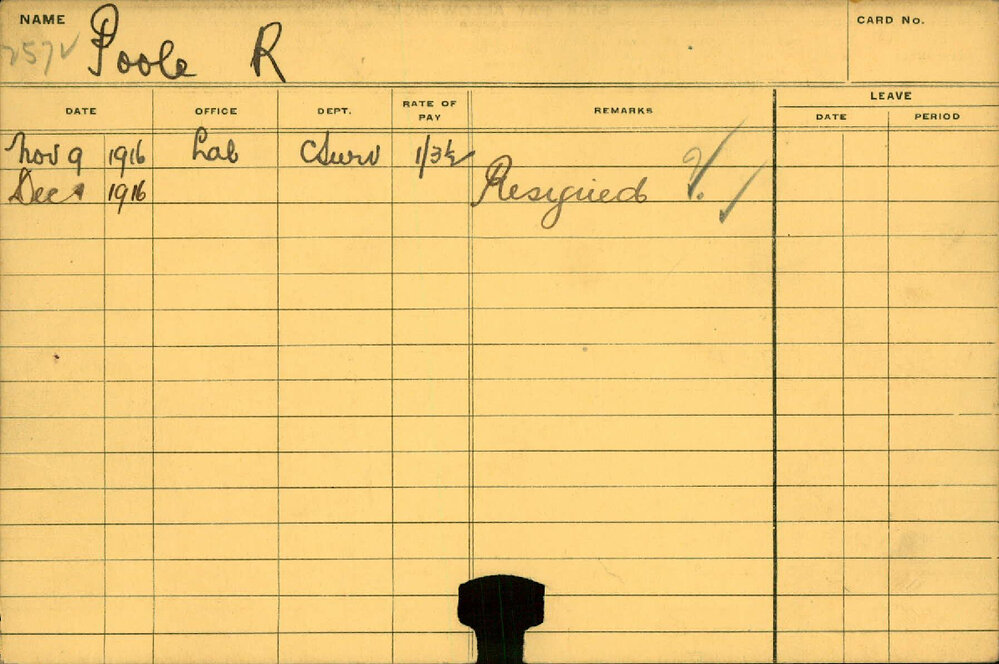 NAME Poole R CARD No.
2572
DATE OFFICE DEPT. RATE OF PAY REMARKS LEAVE
DATE PERIOD
Nov 9 1916 Lab CSurv 1/3½
Dec 1916 Resigned